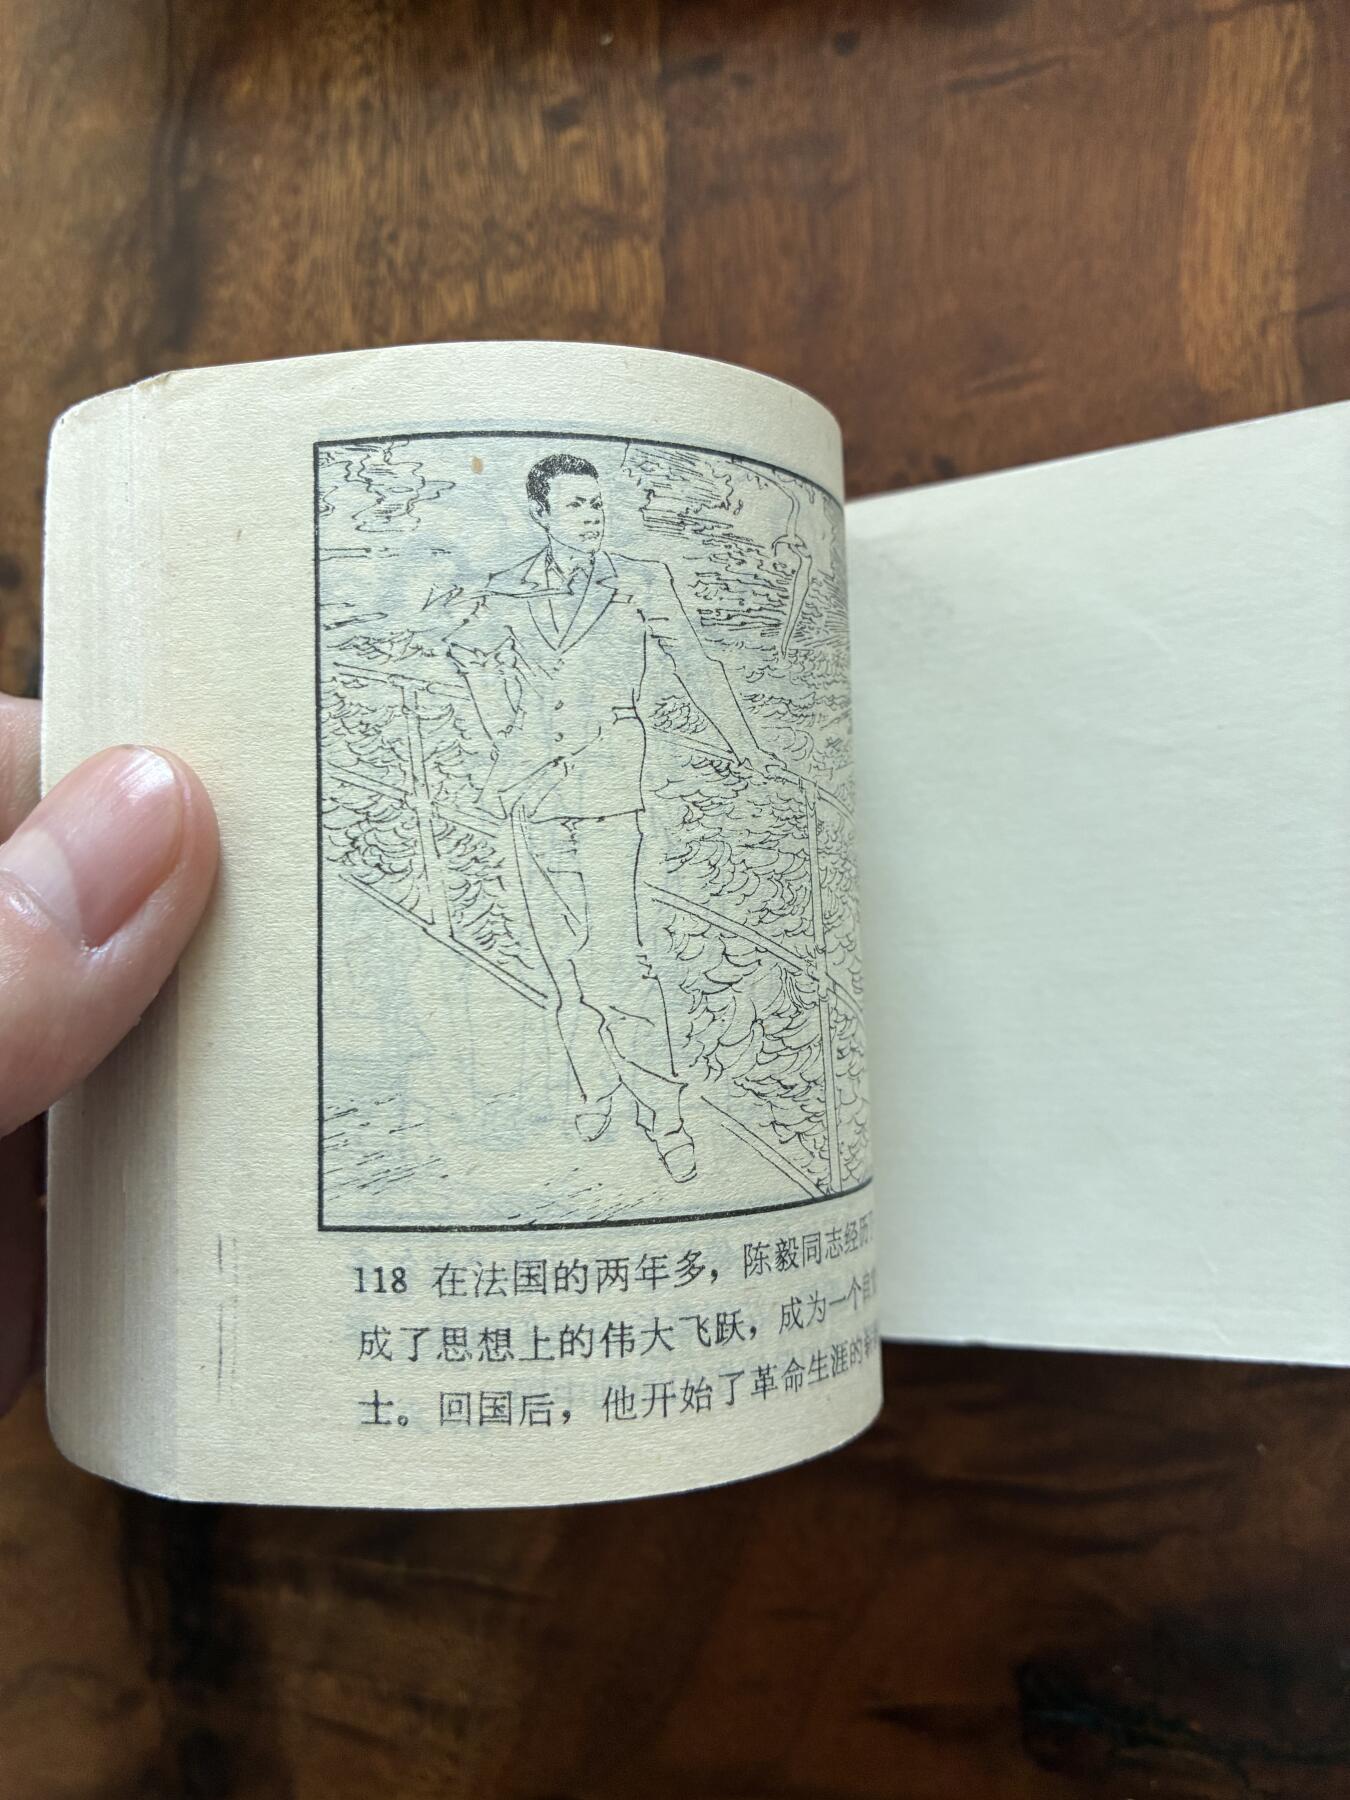 118 在法国的两年多，陈毅同志经历了
成了思想上的伟大飞跃，成为一个自
士。回国后，他开始了革命生涯的新